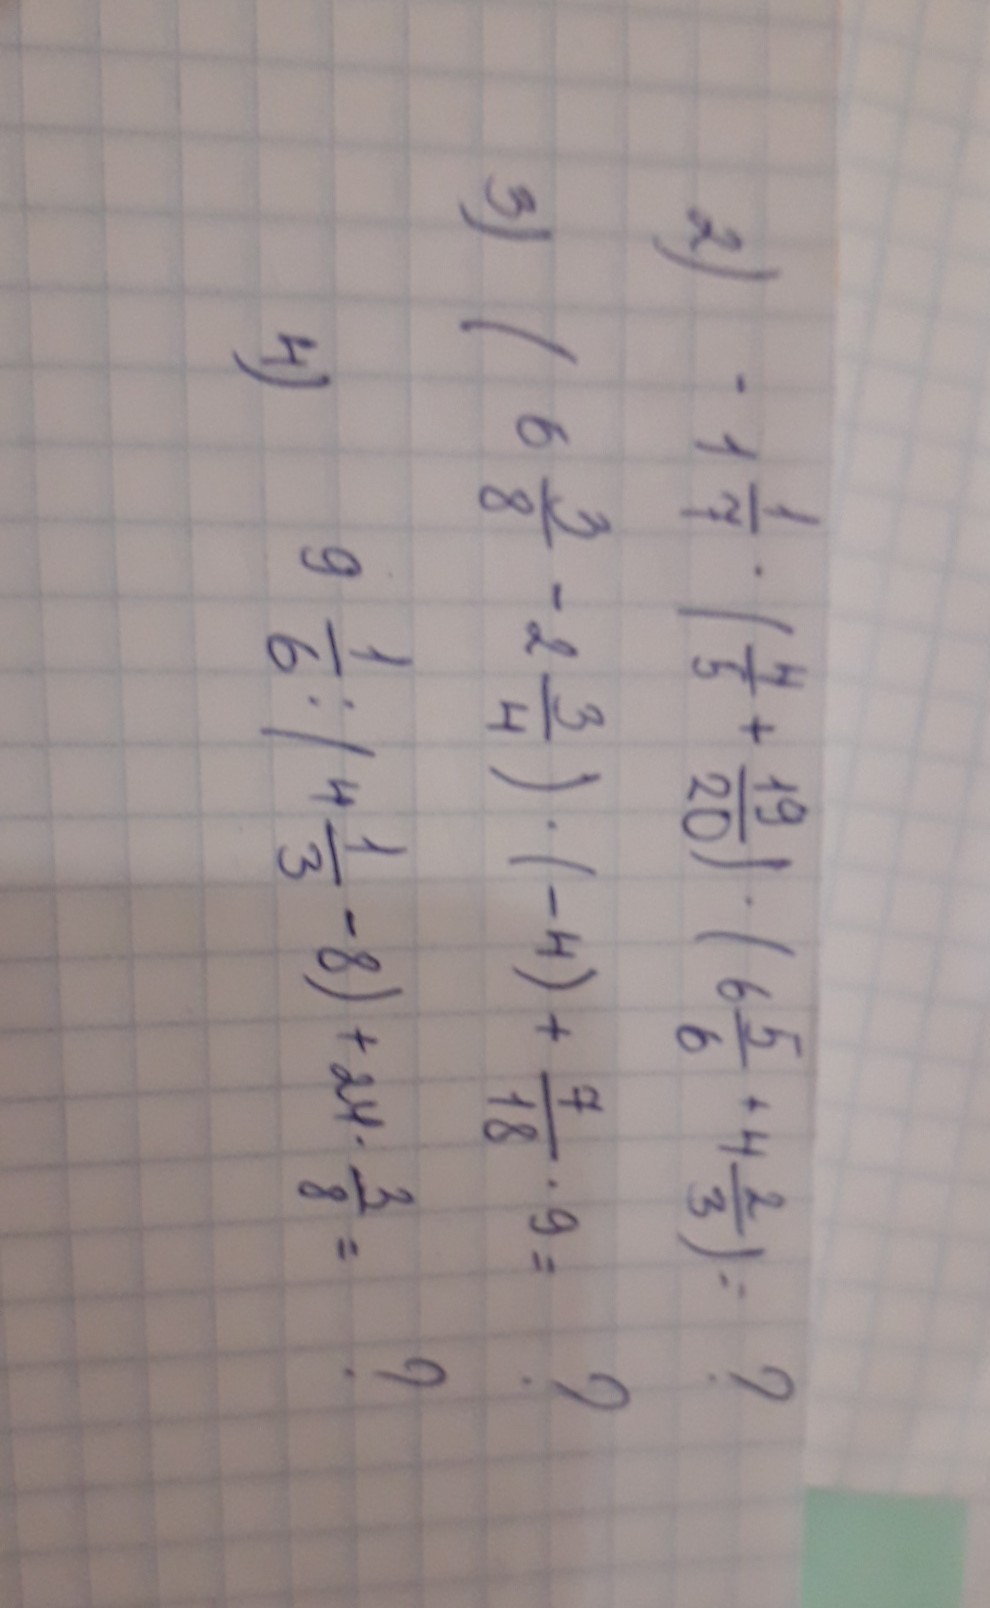 2) - 1 1/7 · (4/5 + 19/20) · (6 5/6 + 4 2/3) = ?
3) (6 3/8 - 2 3/4) · (-4) + 7/18 · 9 = ?
4) 9 1/6 : (4 1/3 - 8) + 24 · 3/8 = ?